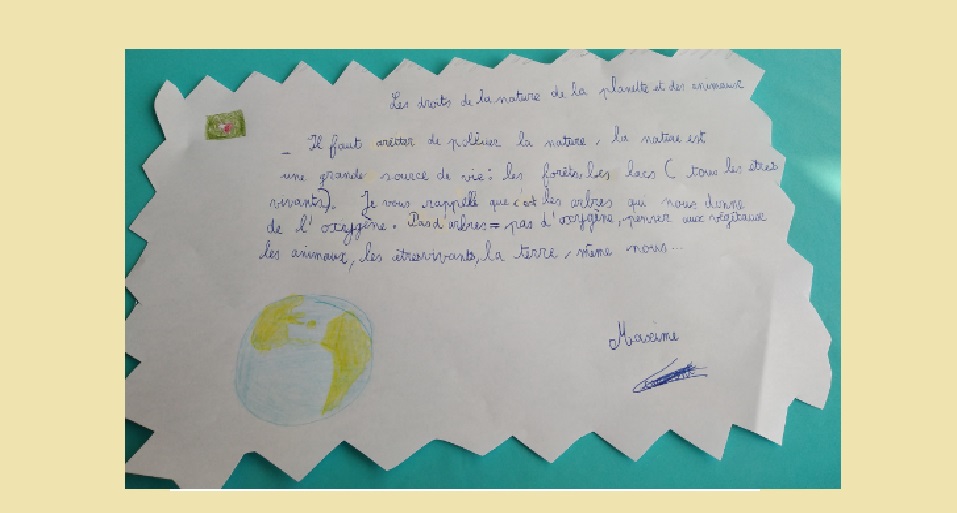 Les droits de la nature de la planette et des animaux
_ Il faut arréter de polluer la nature, la nature est
une grande source de vie : les forêts, les lacs ( tous les êtres
vivants). Je vous rappelle que c'est les arbres qui nous donne
de l'oxygène. Pas d'arbres = pas d'oxygène, penser aux végétaux
les animaux, les êtres vivants, la terre, même nous ...
Maxime